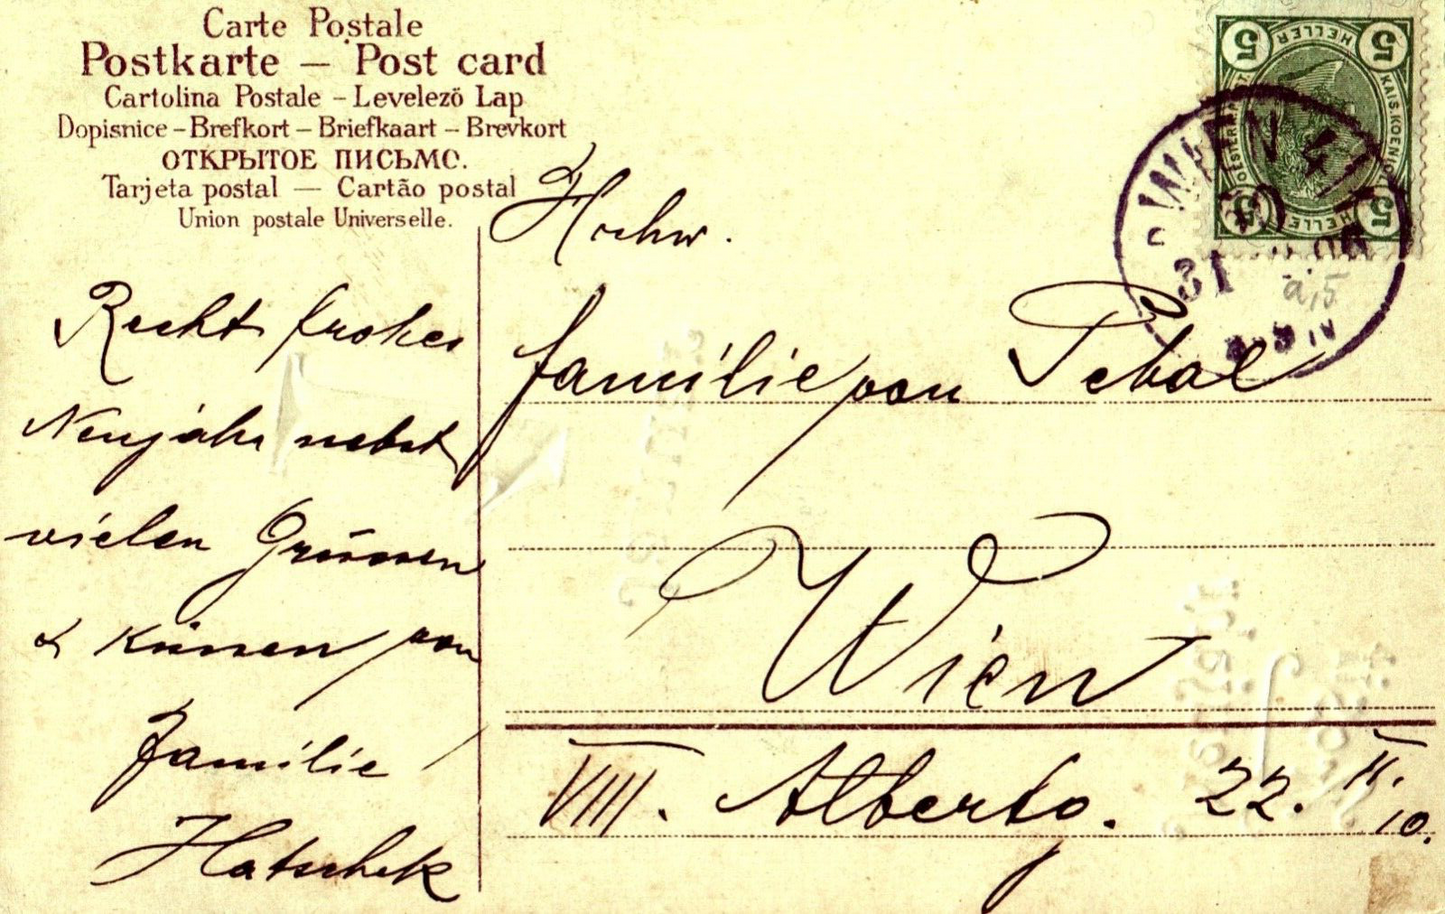 Carte Postale
Postkarte — Post card
Cartolina Postale – Levelező Lap
Dopisnice – Brefkort – Briefkaart – Brevkort
ОТКРЫТОЕ ПИСЬМО.
Tarjeta postal — Cartão postal
Union postale Universelle.
Recht frohes
Neujahr nebst
vielen Grüssen
& Küssen von
Familie
Hatschek
Hochw.
Familie von
Wien
VIII. Albertg. 22. II.
10.
5 HELLER 5
KAIS. KOENIGL.
5 HELLER 5
WIEN 4
31
a,5